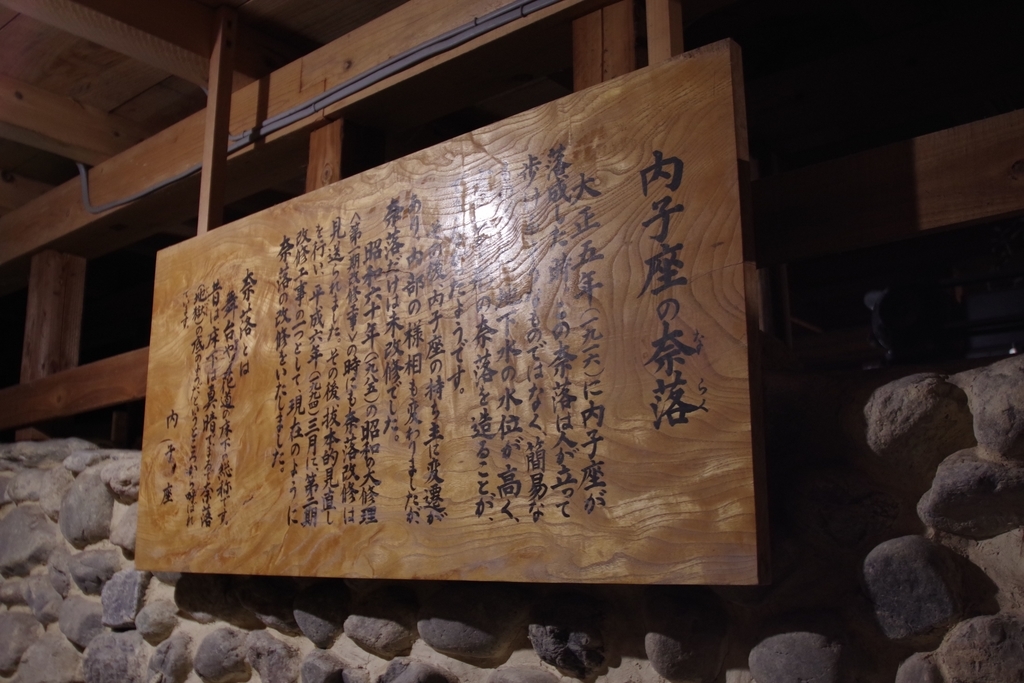 内子座の奈落
ならく
大正五年(一九一六)に内子座が
落成した当時、この奈落は人が立って
歩けるようなものではなく、簡易な
下水の水位が高く、
の奈落を造ることが、
たようです。
その後、内子座の持ち主に変遷が
あり、内部の様相も変わりましたが
奈落だけは未改修でした。
昭和六十年(一九八五)の昭和の大修理
(第一期改修工事)の時にも奈落改修は
見送られました。その後、抜本的見直し
を行い、平成六年(一九九四)三月に第二期
改修工事の一つとして現在のように
奈落の改修をいたしました。
奈落とは
舞台や花道の床下の総称です。
昔は床下は真暗でまるで奈落
(地獄)の底のようだということから呼ばれ
ています。
内子座